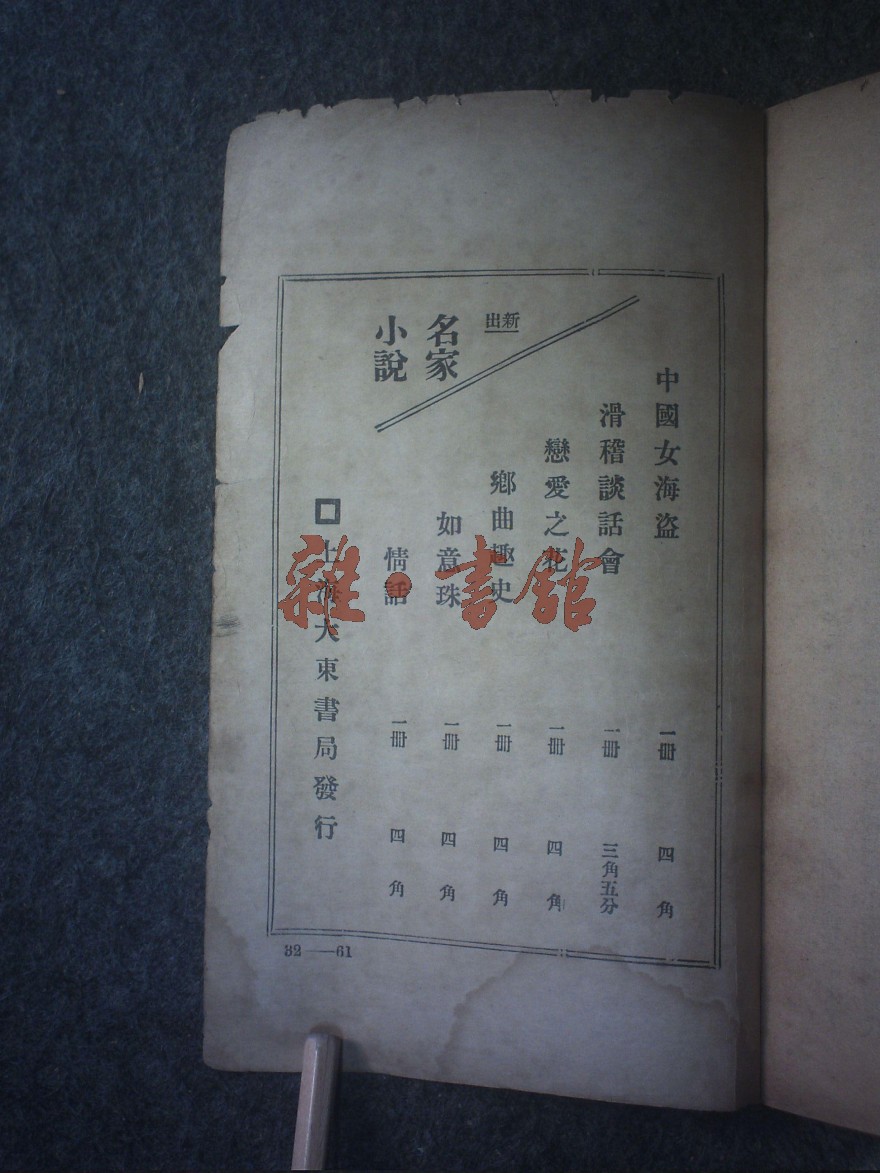 新出
名家
小說
中國女海盜 一冊 四角
滑稽談話會 一冊 三角五分
戀愛之花 一冊 四角
鄉曲趣史 一冊 四角
如意珠 一冊 四角
情話 一冊 四角
上海大東書局發行
32——61
雜·書館